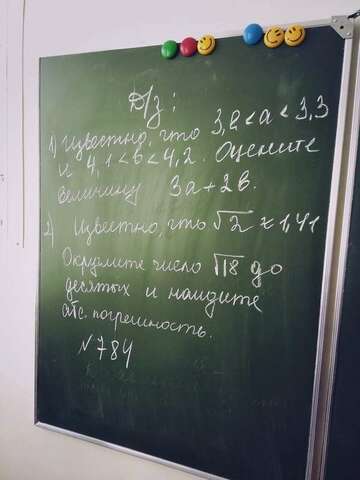 Д/з:
1) Известно, что 3,2<a<3,3
и 4,1<b<4,2. Оцените
величину 3a+2b.
2) Известно, что √2≈1,41
Округлите число √18 до
десятых и найдите
абс. погрешность.
N784